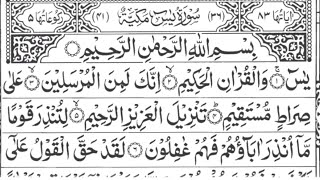 اٰیَاتُهَا ٨٣ (٣٦) سُوْرَةُ یٰسٓ مَكِّیَّةٌ (٤١) رُكُوْعَاتُهَا ٥
بِسْمِ اللّٰهِ الرَّحْمٰنِ الرَّحِیْمِ
یٰسٓ ١ وَالْقُرْاٰنِ الْحَكِیْمِ ٢ اِنَّكَ لَمِنَ الْمُرْسَلِیْنَ ٣ عَلٰی
صِرَاطٍ مُّسْتَقِیْمٍ ٤ تَنْزِیْلَ الْعَزِیْزِ الرَّحِیْمِ ٥ لِتُنْذِرَ قَوْمًا
مَّاۤ اُنْذِرَ اٰبَآؤُهُمْ فَهُمْ غٰفِلُوْنَ ٦ لَقَدْ حَقَّ الْقَوْلُ عَلٰۤی